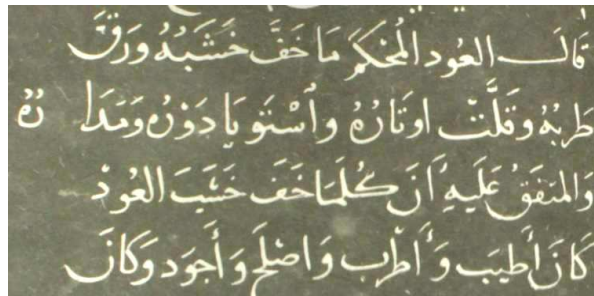 قَالَ العُود المُحْكَمَ مَا خَفَّ خَشَبُهُ وَرَقَّ
طَربُهُ وَقَلَّتْ اوتَارُهُ وأَسْتَويَا دَوْنُ وَمَدَا رُهُ
وَالمتفَقُ عَلَيهِ أَنَّ كُلَمَا خَفَ خَشَبَ العُودْ
كَانَ أَطيَب وَأَطْرب وَاصْلَحَ وَأَجوَد وَكَانَ